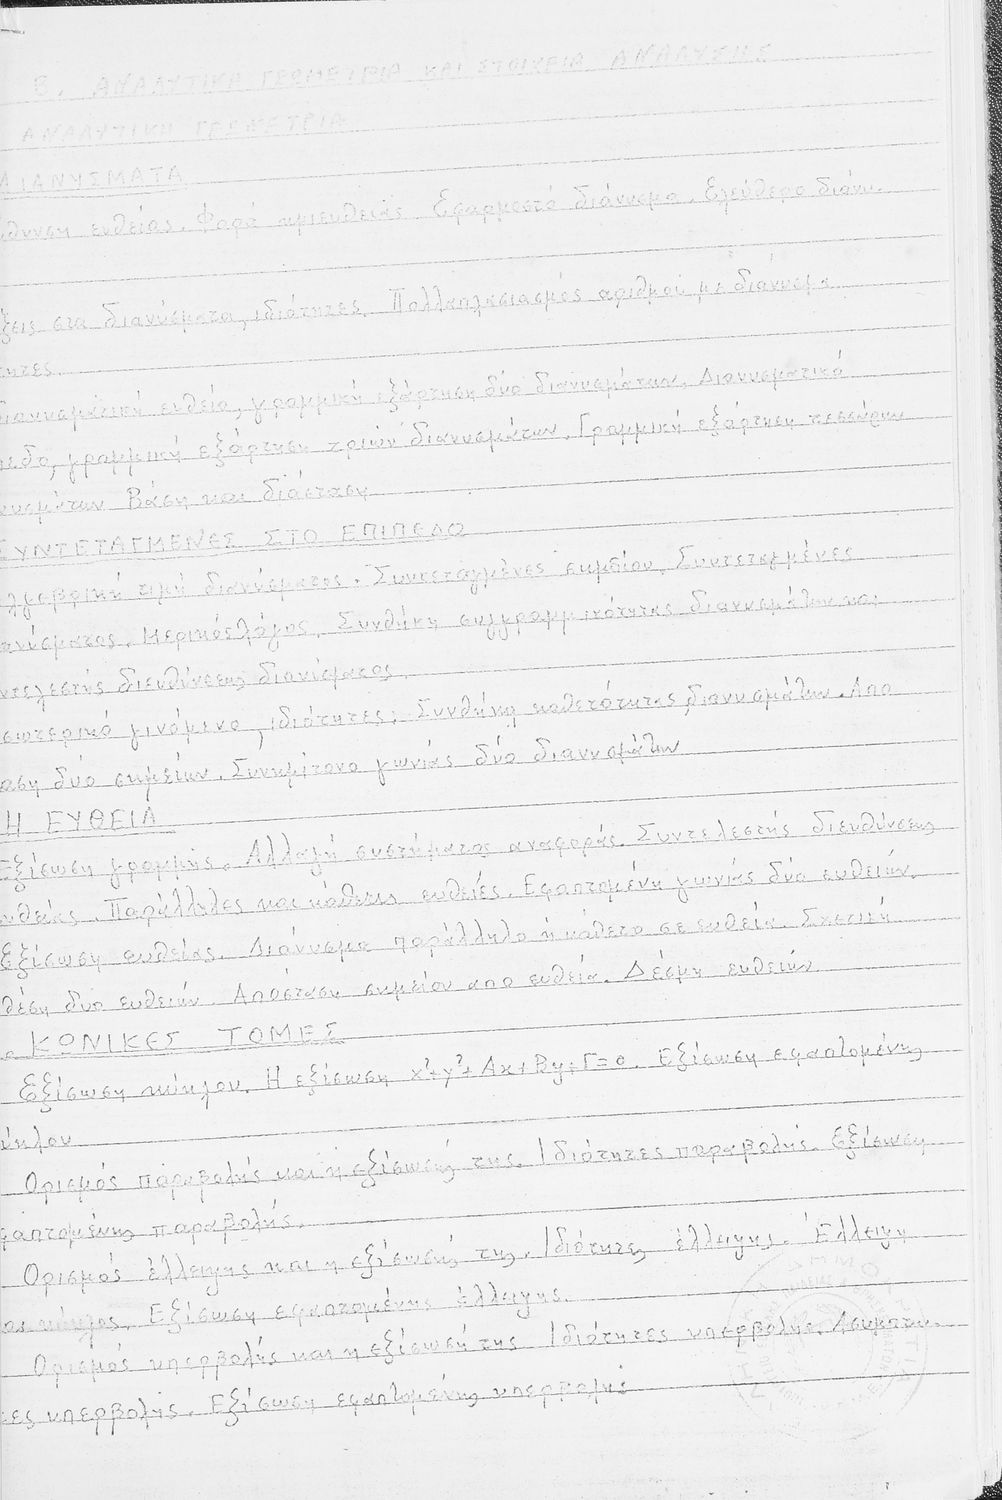 Β. ΑΝΑΛΥΤΙΚΗ ΓΕΩΜΕΤΡΙΑ ΚΑΙ ΣΤΟΙΧΕΙΑ ΑΝΑΛΥΣΗΣ
ΑΝΑΛΥΤΙΚΗ ΓΕΩΜΕΤΡΙΑ
ΔΙΑΝΥΣΜΑΤΑ
ευθείας. Φορά ημιευθείας. Εφαρμοστό διάνυσμα. Ελεύθερο διάνυ-
ξεις στα διανύσματα, ιδιότητες. Πολλαπλασιασμός αριθμού με διάνυσμα
τητες.
Διανυσματική ευθεία, γραμμική εξάρτηση δύο διανυσμάτων. Διανυσματικό
πεδο, γραμμική εξάρτηση τριών διανυσμάτων. Γραμμική εξάρτηση τεσσάρων
νυσμάτων Βάση και διάσταση
ΣΥΝΤΕΤΑΓΜΕΝΕΣ ΣΤΟ ΕΠΙΠΕΔΟ
λγεβρική τιμή διανύσματος. Συντεταγμένες σημείου. Συντεταγμένες
ανύσματος. Μερικός λόγος. Συνθήκη συγγραμμικότητας διανυσμάτων και
ντελεστής διευθύνσεως διανύσματος.
σωτερικό γινόμενο, ιδιότητες. Συνθήκη καθετότητας διανυσμάτων. Απο
αση δύο σημείων. Συνημίτονο γωνίας δύο διανυσμάτων
Η ΕΥΘΕΙΑ
Εξίσωση γραμμής. Αλλαγή συστήματος αναφοράς. Συντελεστής διευθύνσεως
υθείας. Παράλληλες και κάθετες ευθείες. Εφαπτομένη γωνίας δύο ευθειών.
Εξίσωση ευθείας. Διάνυσμα παράλληλο ή κάθετο σε ευθεία. Σχετική
θέση δυο ευθειών. Απόσταση σημείου απο ευθεία. Δέσμη ευθειών
ΚΩΝΙΚΕΣ ΤΟΜΕΣ
Εξίσωση κύκλου. Η εξίσωση x²+y²+Ax+By+Γ=0. Εξίσωση εφαπτομένης
ύκλου
Ορισμός παραβολής και η εξίσωσή της. Ιδιότητες παραβολής. Εξίσωση
φαπτομένης παραβολής.
Ορισμός έλλειψης και η εξίσωσή της. Ιδιότητες έλλειψης. Έλλειψη
και κύκλος. Εξίσωση εφαπτομένης έλλειψης.
Ορισμός υπερβολής και η εξίσωσή της Ιδιότητες υπερβολής. Ασύμπτω-
τες υπερβολής. Εξίσωση εφαπτομένης υπερβολής